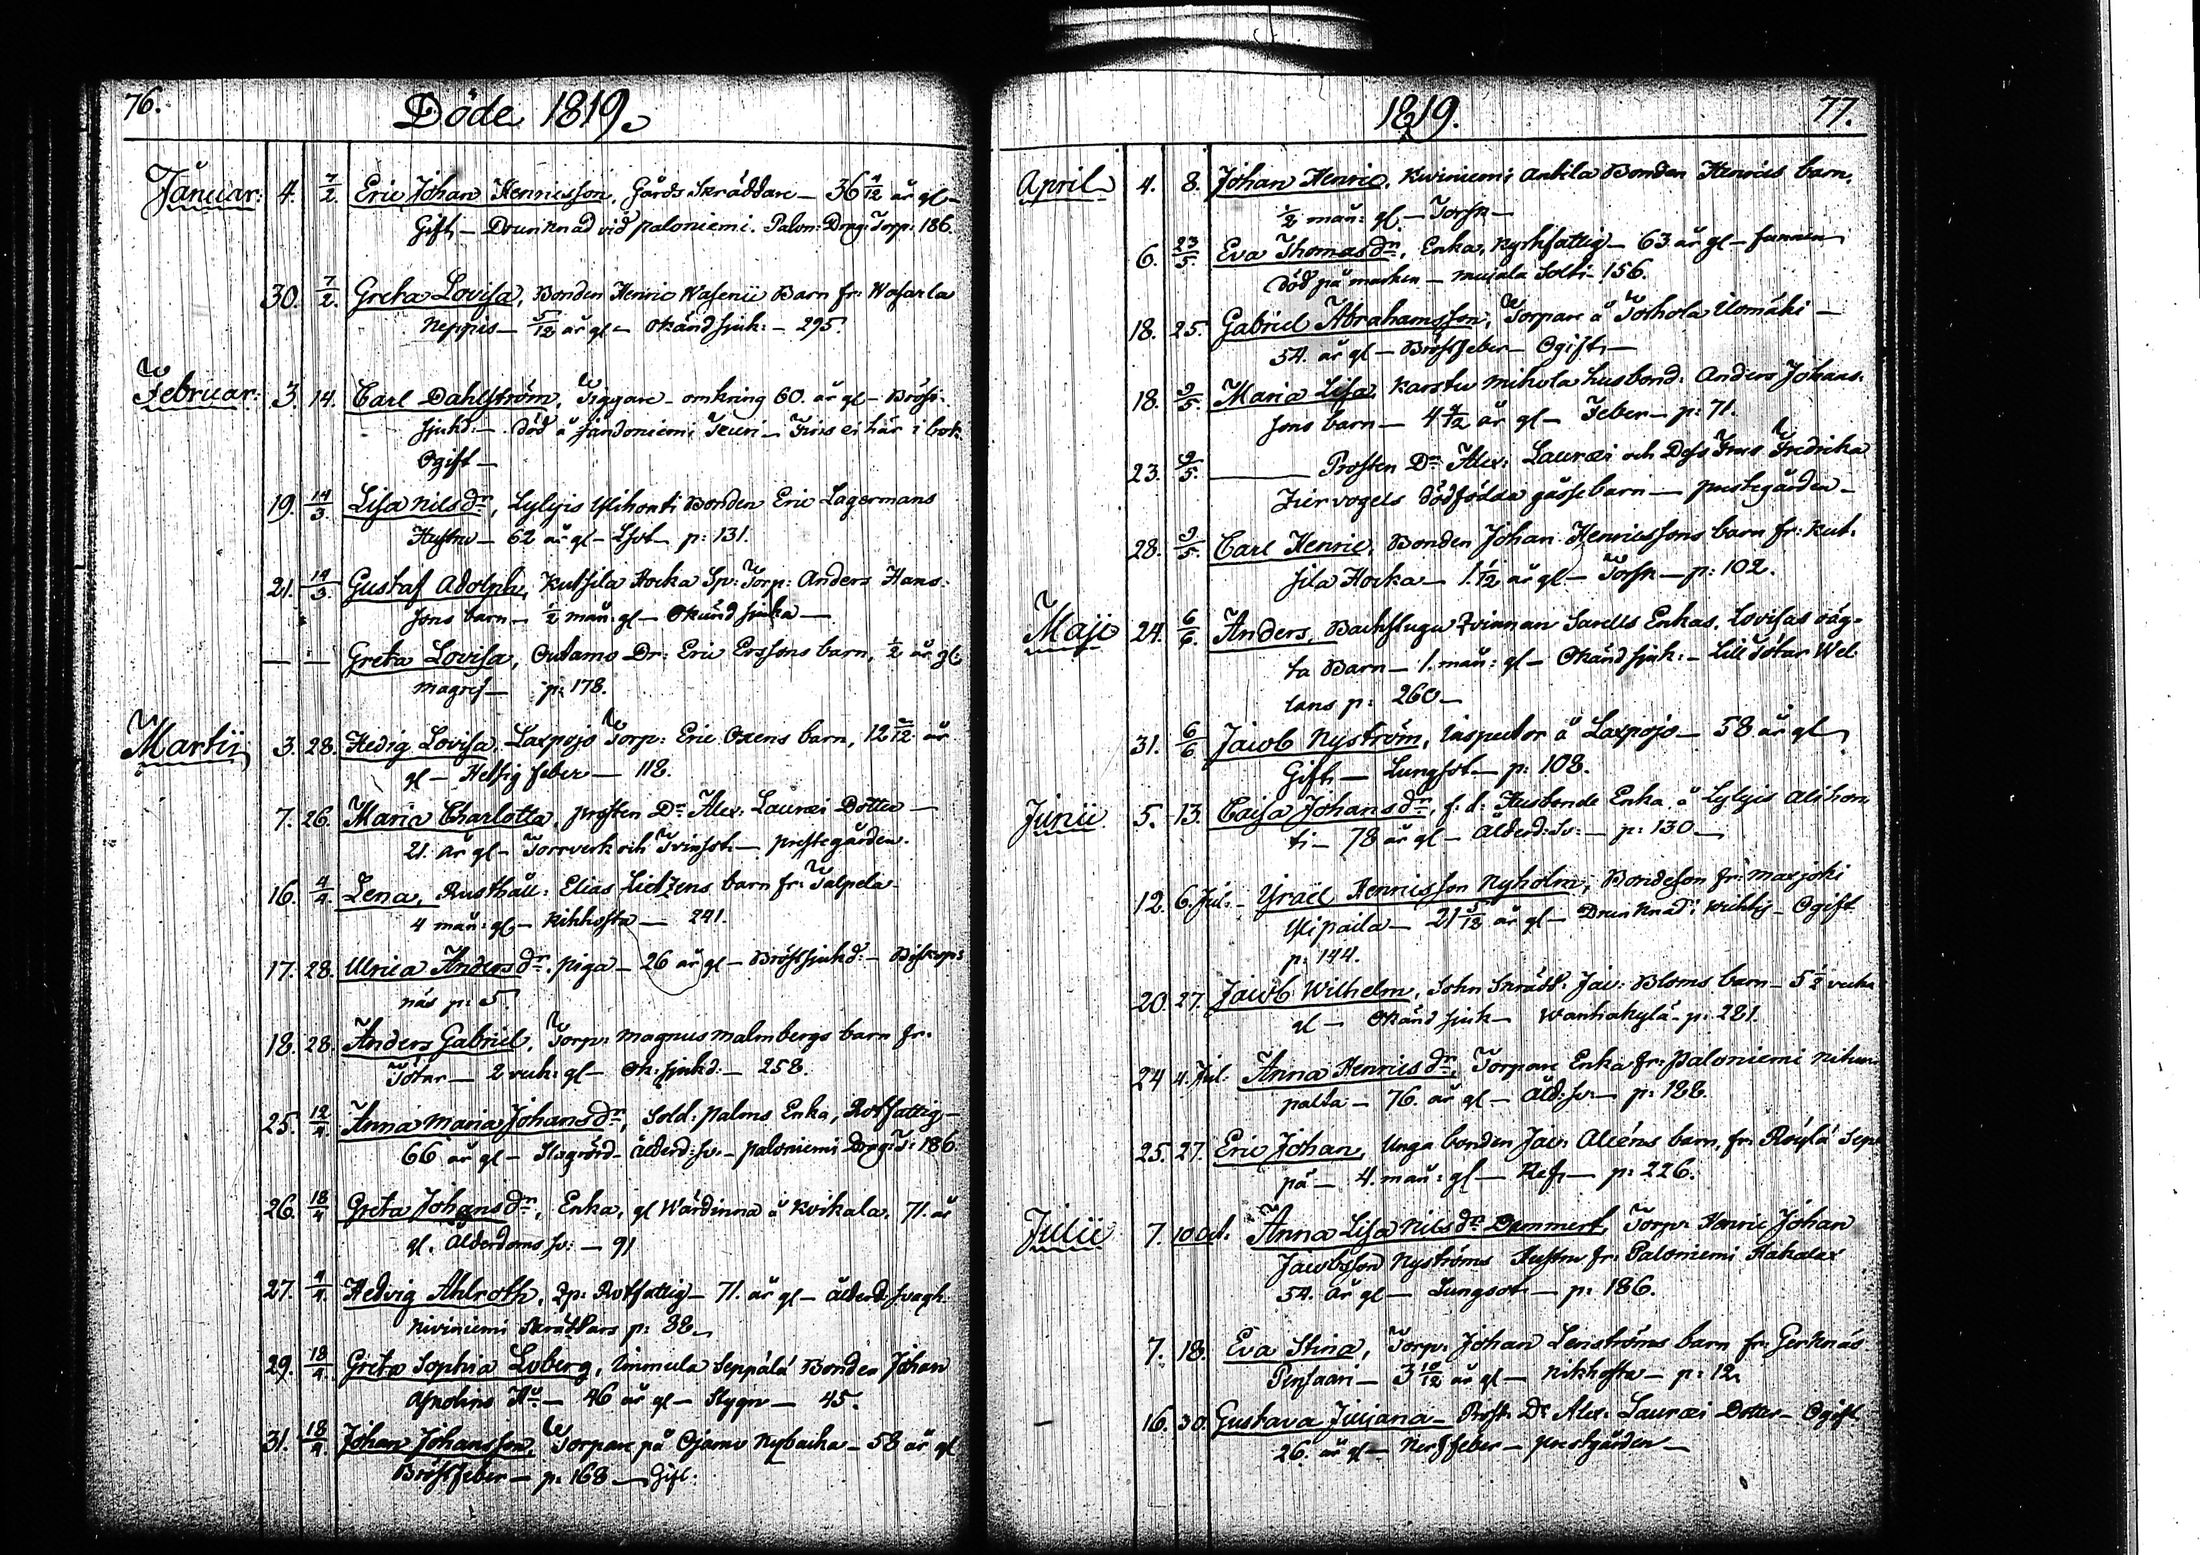 76. Döde 1819.
Januar: 4. 7/2. Eric Johan Henricsson, Gårds Skräddare — 36 4/12 år gl —
Gift — Drunknad vid paloniemi. Palon: Drag: Torp: 186.
30. 7/2. Greta Lovisa, Bonden Henric Wasenii Barn fr: Wasarla
Neppis — 5/12 år gl — Okänd sjuk: — 295.
Februar: 3. 14. Carl Dahlström, Tiggare — omkring 60. år gl — Bröst-
sjukd: — död å Jändoniemi — Fins ei här i bok:
Ogift —
19. 14/3. Lisa Nilsdr, Lylyis Alihonti Bonden Eric Lagermans
Hustru — 62 år gl — p: 131.
21. 14/3. Gustaf Adolph, Kutsila Hocka Sp: Torp: Anders Hans-
sons barn — 1/2 mån: gl — Okänd sjuka —
— — Greta Lovisa, Outamo Dr: Eric Erssons barn, 1/2 år gl
magris — p: 178.
Martii 3. 28. Hedvig Lovisa, Laxpojo Torp: Eric Oxens barn, 12 2/12 år
gl — Hetsig feber — 118.
7. 26. Maria Charlotta, prosten Dr Alex: Lauræi Dotter —
21. år gl — Torrverk och Tvinsot — prestegården.
16. 4/4. Lena, Rusthåll: Elias Lietzens barn fr: Talpela
4 mån: gl — Kikhosta — 241.
17. 28. Ulrica Andersdr, piga — 26 år gl — Bröstsjukd: — Biskops-
näs p: 5.
18. 28. Anders Gabriel, Torp: Magnus Malmbergs barn fr:
Tötar — 2 veck: gl — Ok: sjukd: — 258.
25. 12/4. Anna Maria Johansdr, Sold: Palms Enka, Rotfattig —
66 år gl — Slagrörd — älderd: sv: — paloniemi Drag: T: 186.
26. 18/4 Greta Johansdr, Enka, gl Wärdinna å Kvikala, 71. år
gl. Ålderdoms sv: — 91
27. 4/4. Hedvig Ahlroth, Rotfattig — 71. år gl — älderd: svagh
Kiviniemi Skräddars p: 88
29. 18/4. Greta Sophia Loberg, Immula Seppälä Bonden Johan
Apolins Hu — 46 år gl — Slygn — 45.
31. 18/4. Johan Johansson, Torpare på Ojamo Nybacka — 58 år gl
Bröstfeber — p: 168 — Gift:
1819. 77.
April 4. 8. Johan Henric, Kiviniemi Anttila Bonden Henrics barn,
1/2 mån: gl — Torsk —
6. 23/5. Eva Thomasdr, Enka, kyrkfattig — 63 år gl — funnen
död på marken — Muijala Solti — 156.
18. 25. Gabriel Abrahamsson, Torpare å Torhola Ilomäki —
54. år gl — Bröstfeber — Ogift —
18. 9/5. Maria Lisa, Karstu Mikola husbond: Anders Johans-
sons barn — 4 4/12 år gl — Feber — p: 71.
23. 9/5. — Prosten Dr Alex: Lauræi och Dess Frus Fredrika
Ziervogels dödfödda gossebarn — prestegården —
28. 9/5. Carl Henric, Bonden Johan Henricssons barn fr: Kut-
sila Hocka — 1. 1/12 år gl — Torsk — p: 102.
Maji 24. 6/6. Anders, Backstugu qvinnan Sarells Enkas, Lovisas oäg-
ta Barn — 1. mån: gl — Okänd sjuk: — Lill Tötar Wel
lans p: 260 —
31. 6/6 Jacob Nyström, Inspector å Laxpojo — 58 år gl
Gift — Lungsot — p: 108.
Junii 5. 13. Caisa Johansdr, f: d: Husbonde Enka å Lylyis Alihon
ti — 78 år gl — Ålderd: Sv: — p: 130 —
12. 6. Jul: Israel Henricsson Nyholm, Bondeson fr: Maxjoki
Ylipaila — 21 5/12 år gl — Drunknad i — Ogift
p: 144.
20. 27. Jacob Wilhelm, Sokn Skrädd: Jac: Bloms barn — 5 1/2 veck
gl — Okänd sjuk — Wanhakylä — p: 281.
24 4. Jul: Anna Henricsdr, Torpare Enka fr: Paloniemi
palta — 76. år gl — Åld: sv: — p: 188.
25. 27. Eric Johan, Unga bonden Jac: Aliéns barn, fr: Röylä Sep
pä — 4. mån: gl — Ref — p: 226.
Julii 7. 10 Oct: Anna Lisa Nilsdr Dammert, Torp: Henric Johan
Jacobsson Nyströms Hustru fr: Paloniemi Hakalax
54. år gl — Lungsot — p: 186.
7. 18. Eva Stina, Torp: Johan Lenströms barn fr: Gerknäs
Pensaari — 3 10/12 år gl — Kikhosta — p: 12.
16. 30. Gustava Juliana — Prost: Dr Alex: Lauræi Dotter — Ogift
26. år gl — Nerffeber — prestgården —